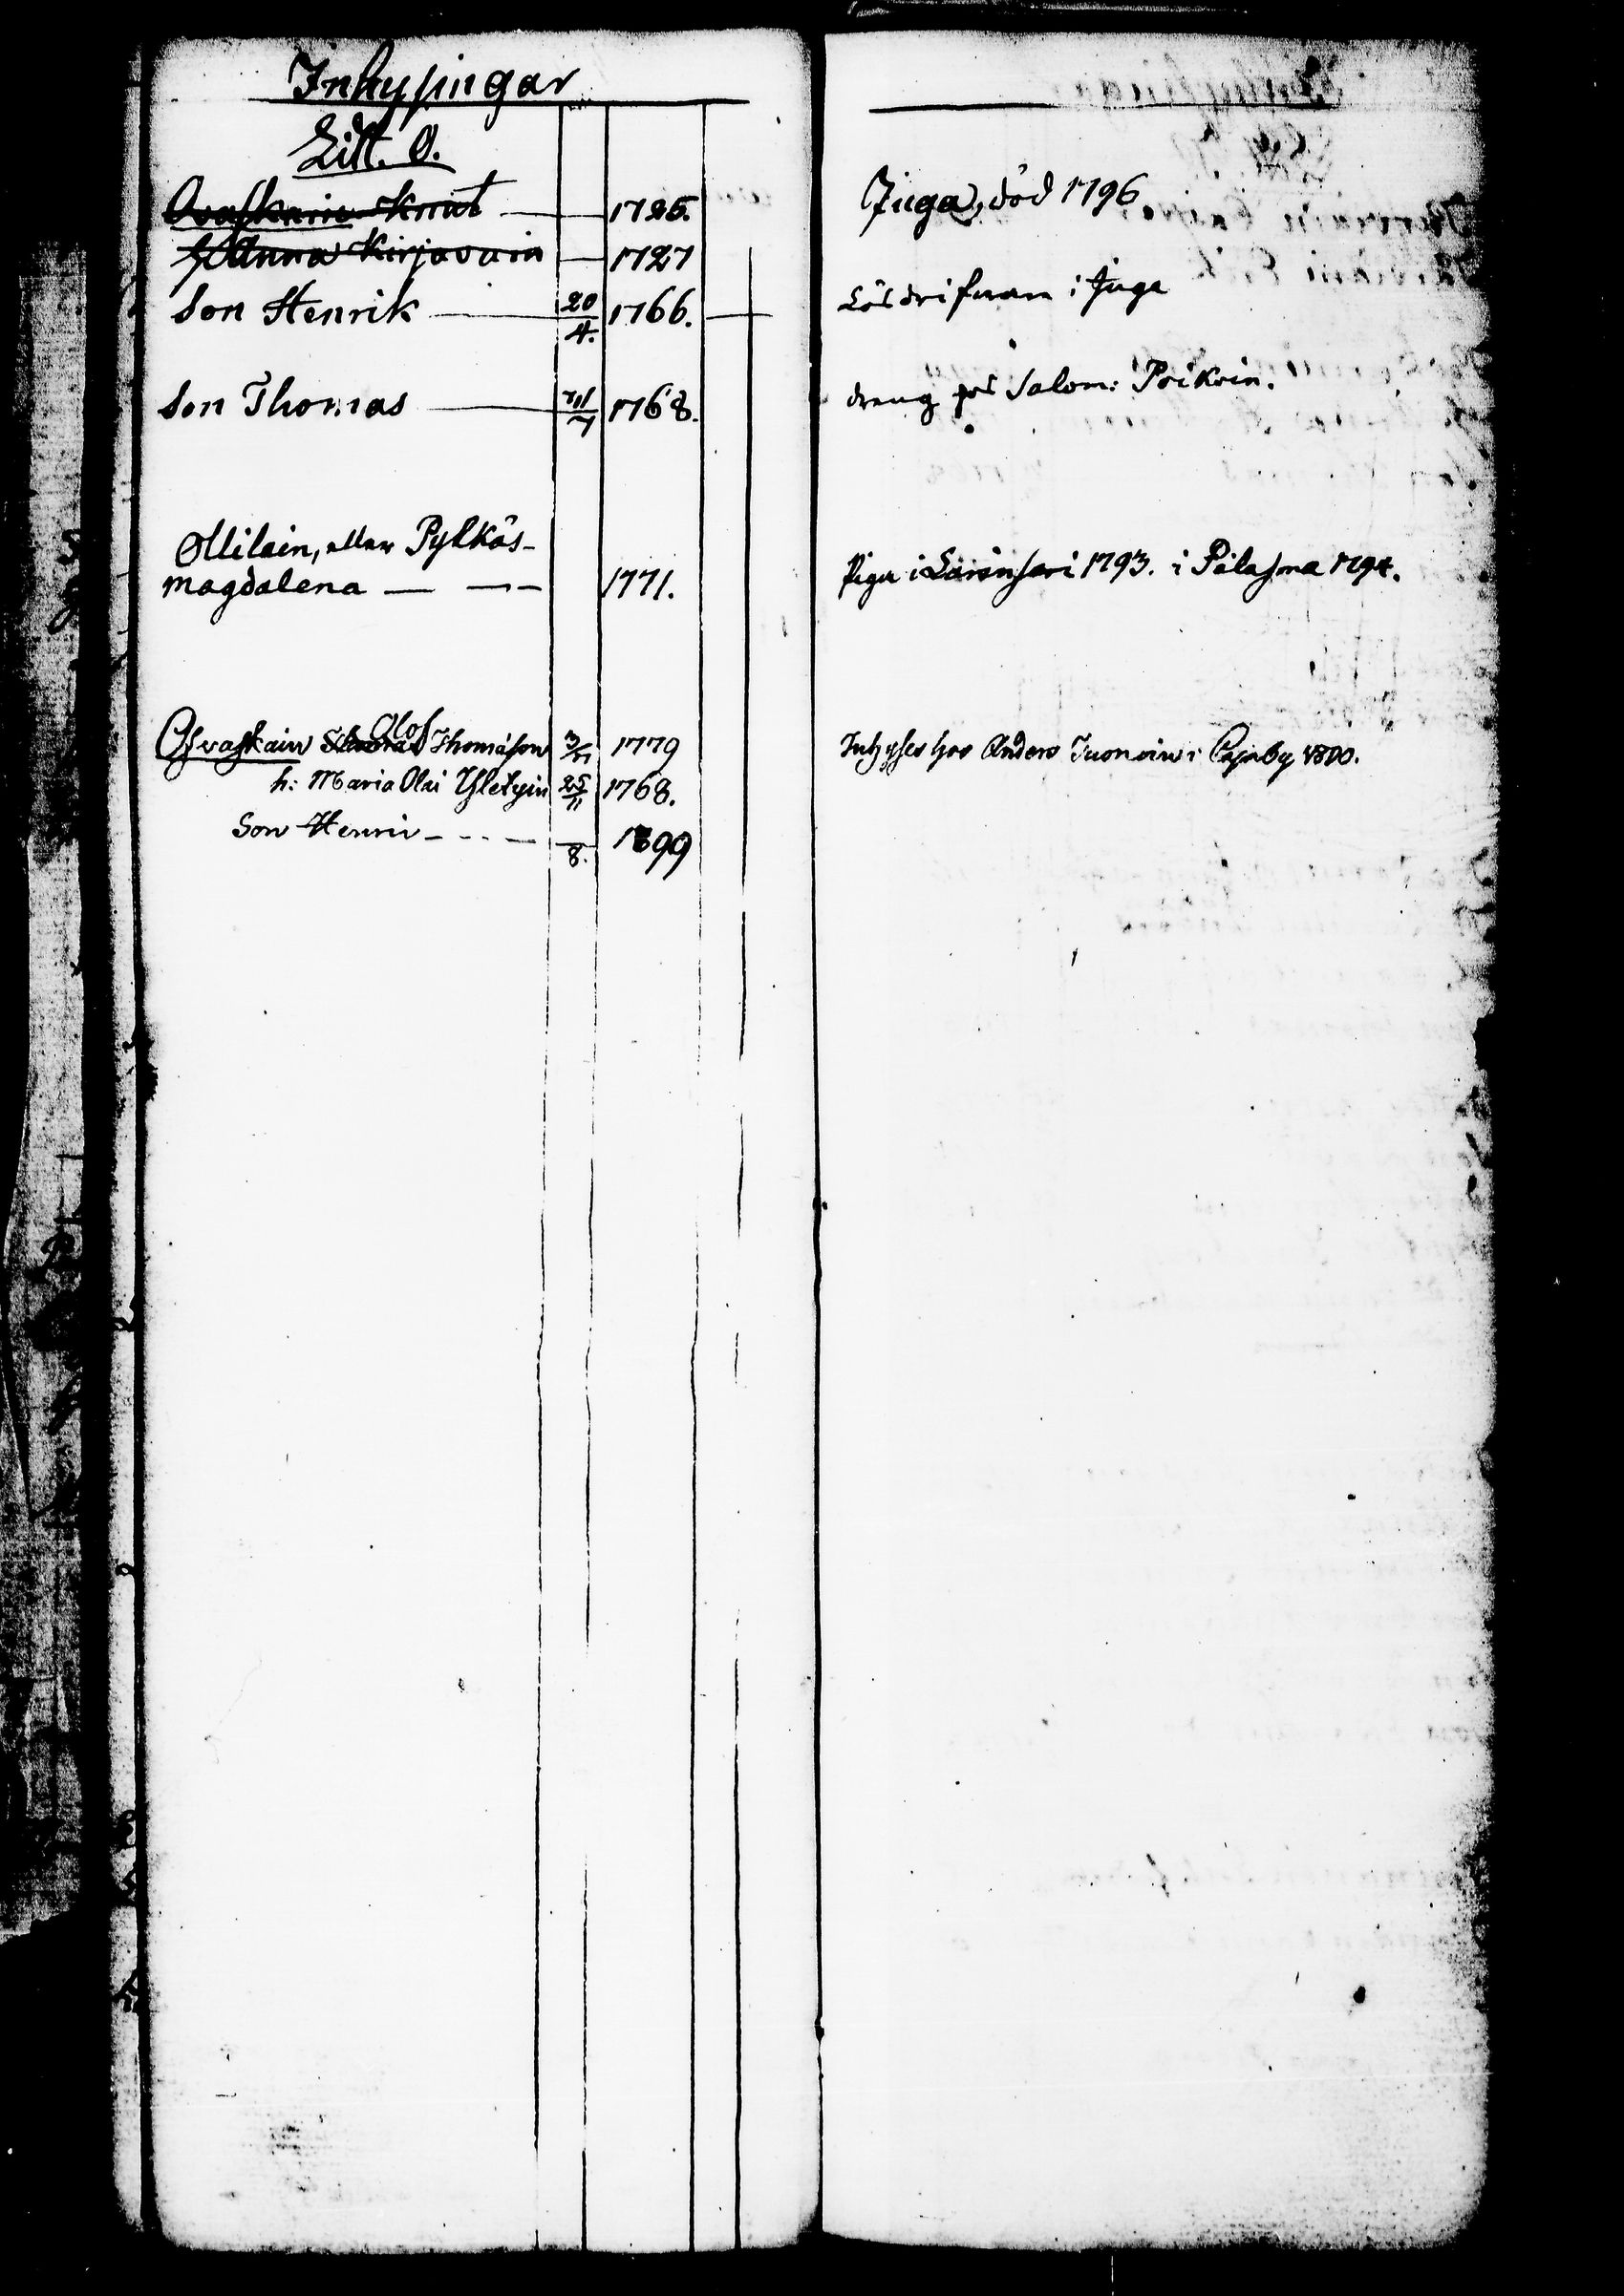 Inhysingar
Litt. O.
Ovaskain Knut 1725. Juga, död 1796
h. Anna Kirjavain 1727
Son Henrik 20/4. 1766. Lösdrifvare i Juga
Son Thomas /7 1768. dreng hos Salom: Poikoin.
Ollilain, eller Pylkäs-
Magdalena 1771. Piga i 1793. i Pielasma 1794.
Olof
Ovaskain Thomas Thomasson 3/11 1779 Inhyses hos Anders Tuonoin i 1800.
h: Maria Olai Yletyin 25/11 1768.
Son Henric /8. 1799